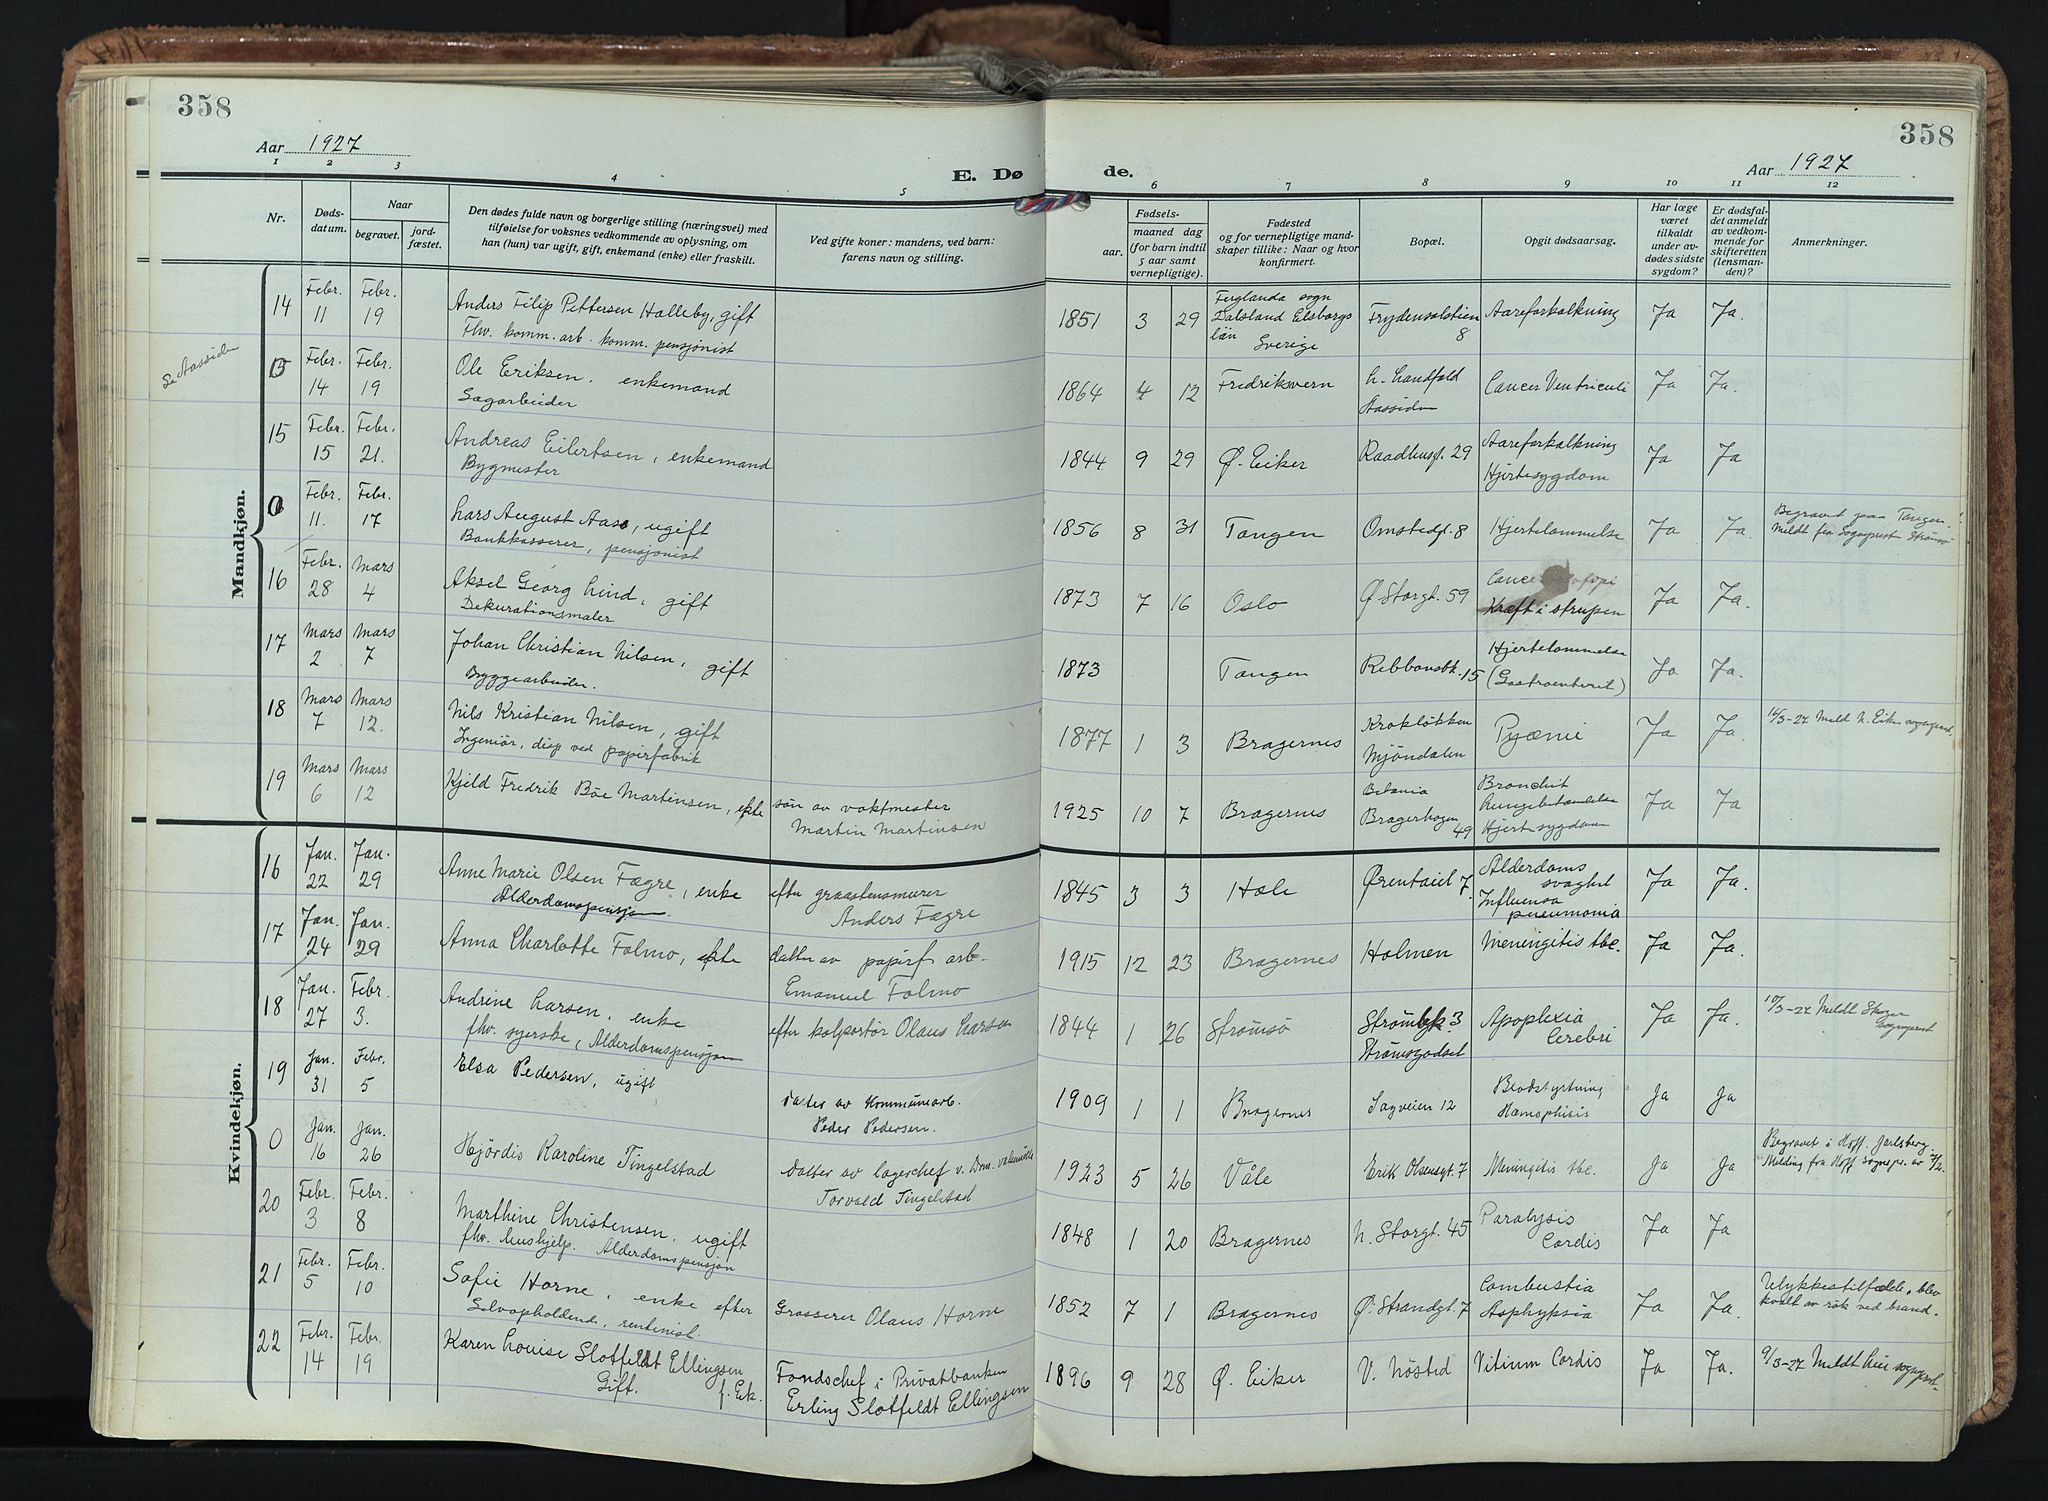 358
358
Aar 1927
Aar 1927
E. Dø
de.
1 2 3 4 5 6 7 8 9 10 11 12
Nr.
Døds-
datum.
Naar
begravet.
jord-
fæstet.
Den dødes fulde navn og borgerlige stilling (næringsvei) med
tilføielse for voksnes vedkommende av oplysning, om
han (hun) var ugift, gift, enkemand (enke) eller fraskilt.
Ved gifte koner: mandens, ved barn:
farens navn og stilling.
Fødsels-
aar.
maaned dag
(for barn indtil
5 aar samt
vernepligtige).
Fødested
og for vernepligtige mand-
skaper tillike: Naar og hvor
konfirmert.
Bopæl.
Opgit dødsaarsag.
Har læge
været
tilkaldt
under av-
dødes sidste
sygdom?
Er dødsfal-
det anmeldt
av vedkom-
mende for
skifteretten
(lensman-
den)?
Anmerkninger.
Mandkjøn.
14 Febr. 11 Febr. 19 Anders Filip Pettersen Halleby, gift
Fhv. komm. arb. komm. pensjonist
1851 3 29 Ferglanda sogn
Dalsland Elsborgs
län Sverige
Frydensalstien
8
Aareforkalkning Ja Ja.
Se Aassiden
0 Febr. 14 Febr. 19 Ole Eriksen, enkemand
Sagarbeider
1864 4 12 Fredriksvern
N. Landfald
Aassiden
Cancer Ventriculi Ja Ja.
15 Febr. 15 Febr. 21. Andreas Eilertsen, enkemand
Bygmester
1844 9 29 Ø. Eiker Raadhusgt. 29
Aareforkalkning
Hjertesygdom
Ja Ja
0 Febr. 11. Febr. 17 Lars August Aas, ugift
Bankkasserer, pensjonist
1856 8 31 Tangen Omstedgt. 8 Hjertelammelse Ja Ja.
Begravet paa Tangen.
Meldt fra Sogneprest Strømsø
16 Febr. 28 Mars 4 Aksel Georg Lind, gift
Dekorationsmaler
1873 7 16 Oslo Ø Storgt. 59
Cancer
Kræft i strupen
Ja Ja.
17 Mars 2 Mars 7 Johan Christian Nilsen, gift
Byggearbeider.
1873 Tangen Rebbansbk. 15
Hjertelammelse
(Gastroenterit)
Ja Ja.
18 Mars 7 Mars 12. Nils Kristian Nilsen, gift
Ingeniør, disp ved papirfabrik
1877 1 3 Bragernes
Krokløkken
Mjøndalen
Pyæmie Ja Ja.
14/3-27 Meldt N. Eiker sogneprest.
19 Mars 6 Mars 12 Kjeld Fredrik Bøe Martinsen, ekte
søn av vaktmester
Martin Martinsen
1925 10 7 Bragernes
Betania
Bragerhagen
49
Bronchit
Lungebetændelse
Hjertesygdom
Ja Ja
Kvindekjøn.
16 Jan. 22 Jan. 29 Anne Marie Olsen Fægre, enke
Alderdomspensjon.
efter graastensmurer
Anders Fægre
1845 3 3 Hole Ørentaiet 7.
Alderdoms
svaghet
Influensa
pneumonia
Ja Ja.
17 Jan. 24 Jan. 29 Anna Charlotte Folmo, ekte
datter av papirf arb-
Emanuel Folmo
1915 12 23 Bragernes Holmen Meningitis tbc. Ja Ja.
18 Jan. 27 Febr. 3. Andrine Larsen, enke
fhv. syerske, Alderdomspensjon
efter kolportør Olaus Larsen
1844 1 26 Strømsø
Strømbgk. 3
Strømsgodset
Apoplexia
Cerebri
Ja Ja.
10/3-27 Meldt Skoger
Sogneprest
19 Jan. 31 Febr. 5 Elsa Pedersen, ugift
datter av Kommunearb.
Peder Pedersen.
1909 1 1 Bragernes Sagveien 12
Blodstyrtning
Hæmophisis
Ja Ja
0 Jan. 16 Jan. 26 Hjørdis Karoline Tingelstad
datter av lagerchef v. Drm. valsemølle
Torvald Tingelstad
1923 5 26 Våle Erik Olsensgt. 7 Meningitis tbc. Ja Ja
Begravet i Hoff, Jarlsberg.
Melding fra Hoff Sognepr. av 7/2.
20 Febr. 3 Febr. 8 Marthine Christensen, ugift
fhv. hushjelp. Alderdomspensjon
1848 1 20 Bragernes N. Storgt. 45
Paralysis
Cordis
Ja Ja
21 Febr. 5 Febr. 10 Sofie Horne, enke efter
Selvopholdende, rentenist.
Grosserer Olaus Horne
1852 7 1 Bragernes Ø. Strandgt. 7
Combustia
Asphyksia
Ja Ja.
Ulykkestilfælde, blev
kvalt av røk ved brand.
22 Febr. 14 Febr. 19 Karen Louise Slotfeldt Ellingsen
Gift. f. Eik.
Fondschef i Privatbanken
Erling Slotfeldt Ellingsen
1896 9 28 Ø. Eiker V. Nøsted Vitium Cordis Ja Ja.
9/3-27 Meldt Lier sogneprest.